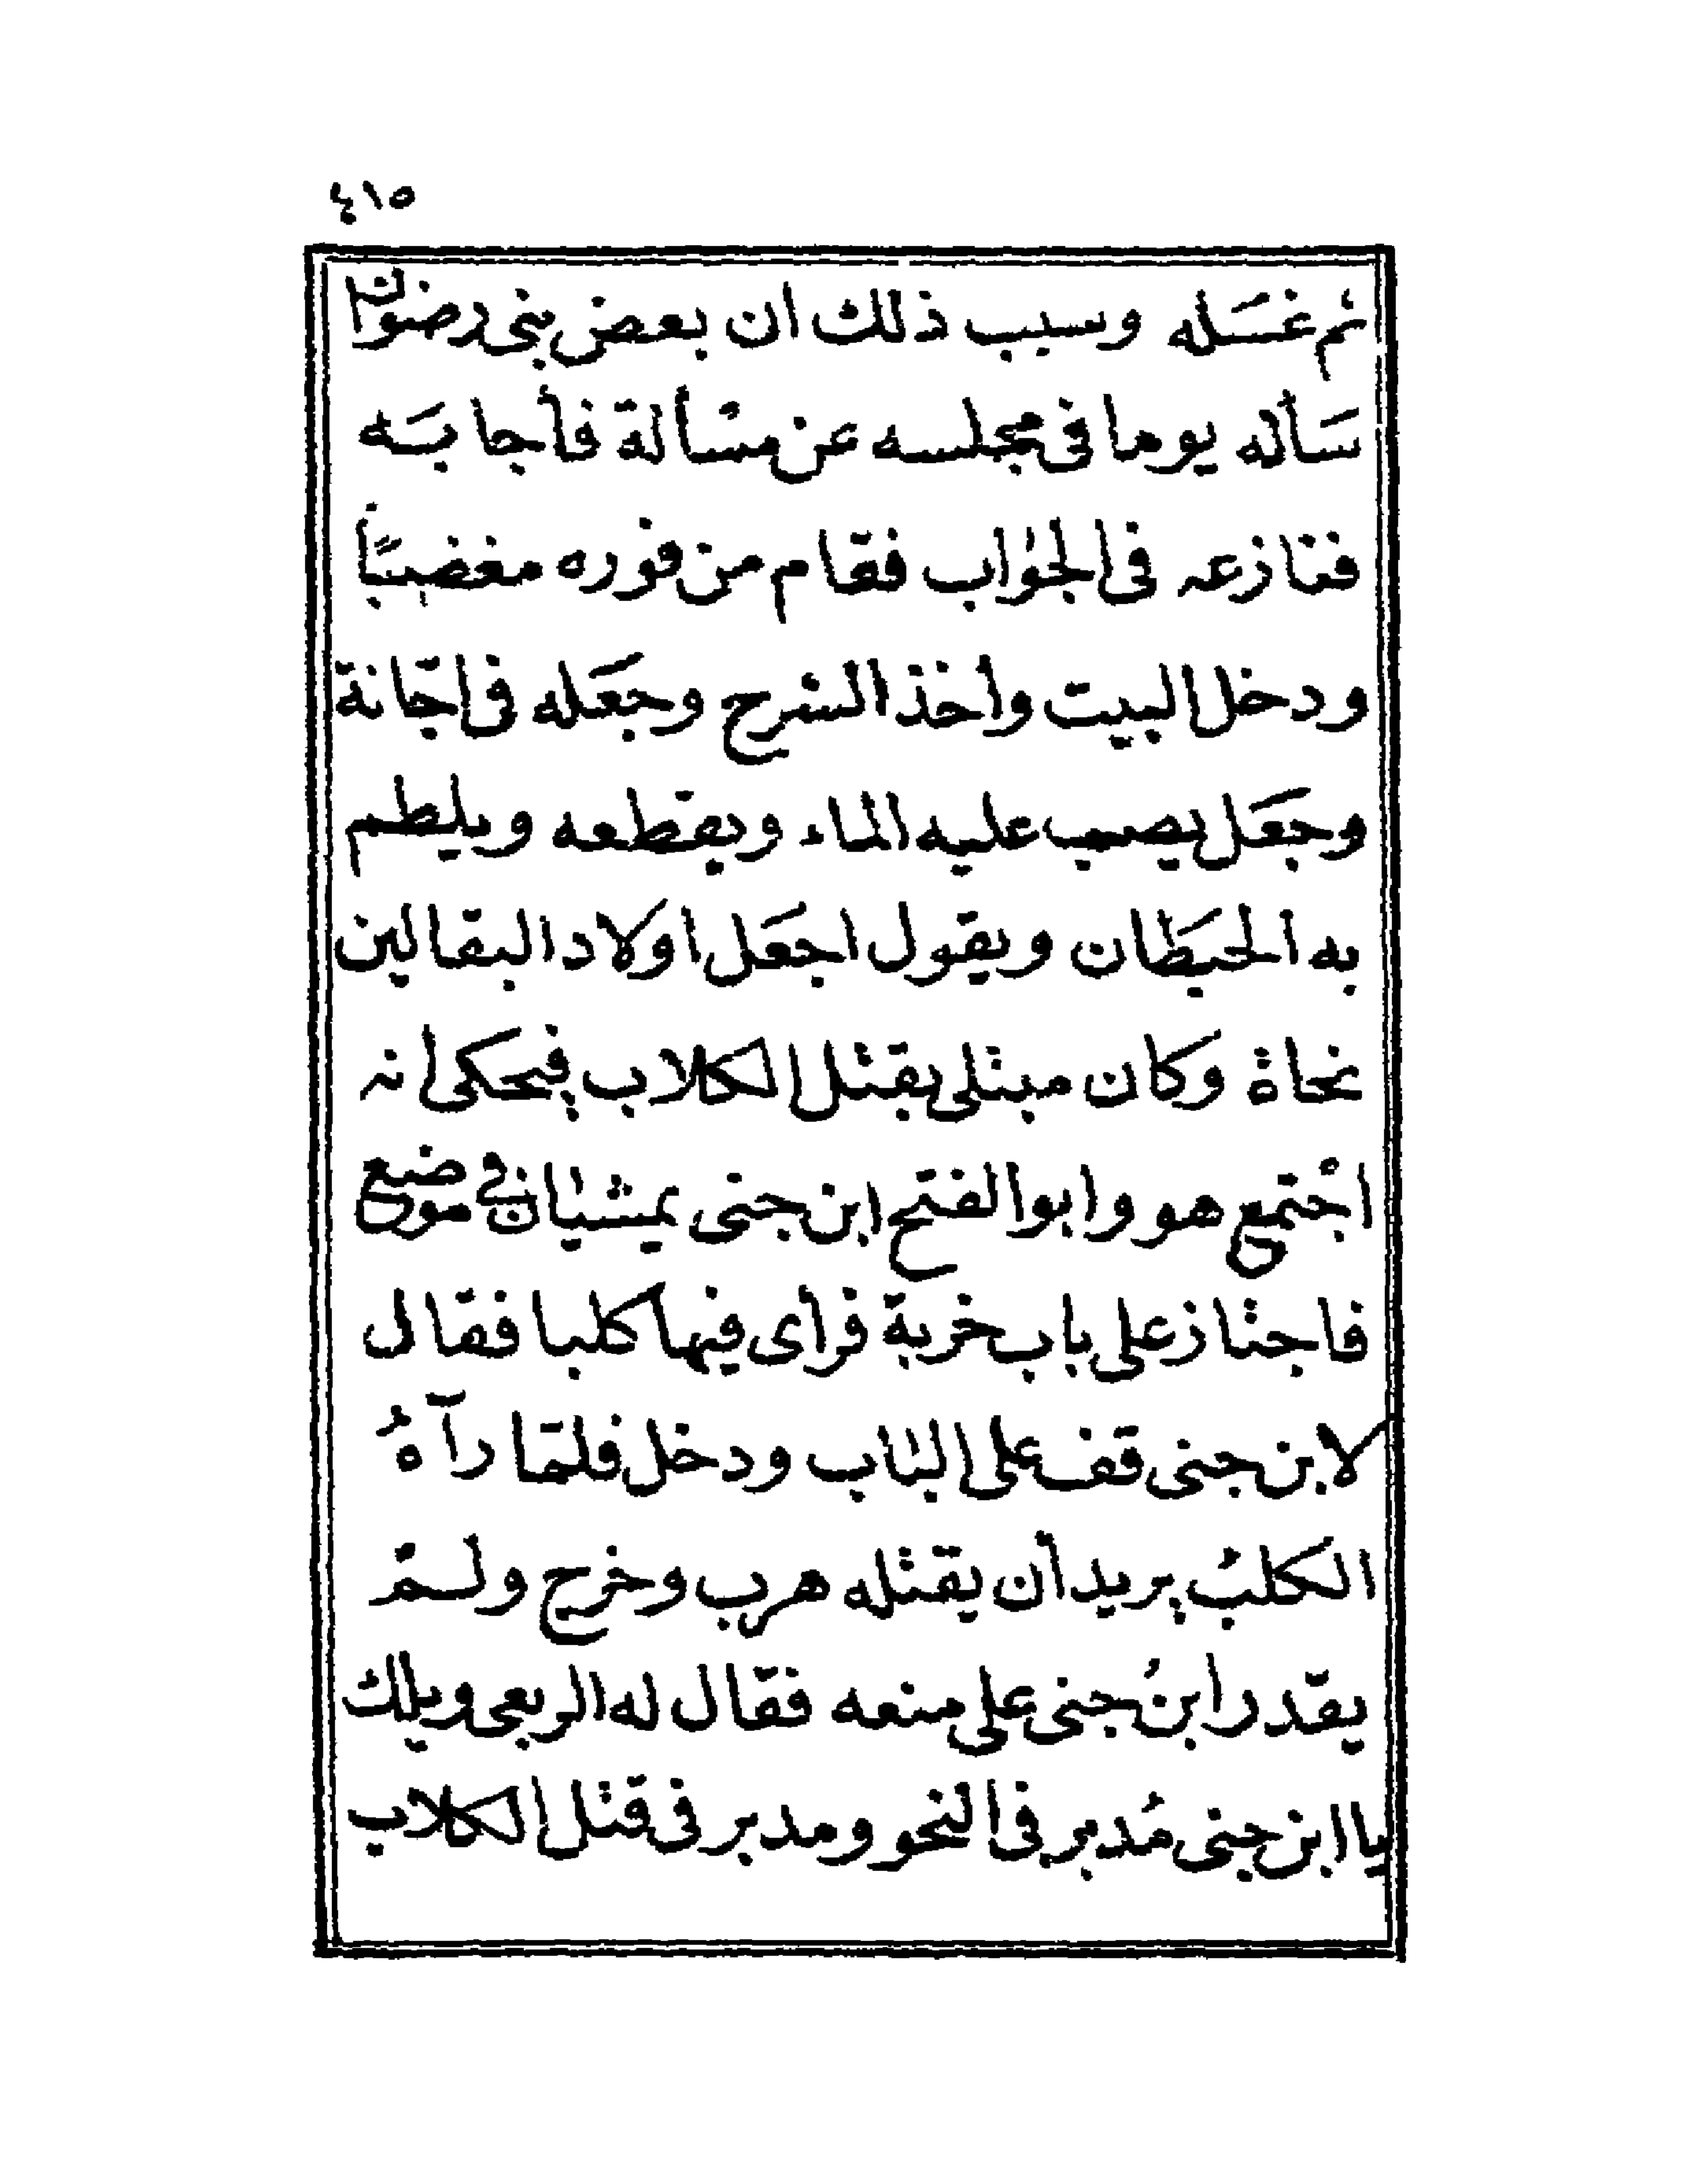 ٤١٥
ثم غسَله وسبب ذلك ان بعض بنى رضوان
سَأله يوما فى مجلسه عن مسْألة فأجابَه
فنازعه فى الجواب فقام من فوره مغضبًا
ودخل البيت وأخذ الشرح وجعَله فى اجّانة
وجعَل يصب عليه الماء ويقطعه ويلطم
به الحيَطان ويقول اجعَل اولاد البقالين
نحاة وكان مبتلى بقتل الكلاب فيحكى أنه
اجْتمع هو وابو الفتح ابن جنى يمشيان فى موضع
فاجتاز على باب خربة فرأى فيها كلبا فقال
لابن جنى قف على الباب ودخل فلمّا رآهُ
الكلبُ يريد أن يقتله هرب وخرج ولمْ
يقدر ابنُ جنى على منعه فقال له الربعى ويلك
يا ابن جنى مُدبر فى النحو ومدبر فى قتل الكلاب